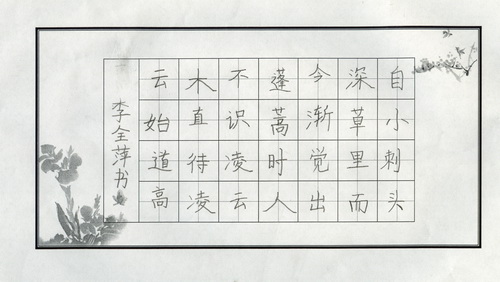 自小刺头
深草里而
今渐觉出
蓬蒿时人
不识凌云
木直待凌
云始道高
李全萍书